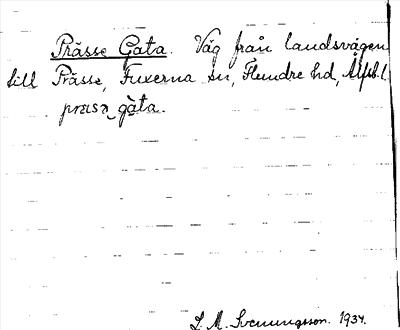 Prässe Gata. Väg från landsvägen
till Prässe, Fuxerna sn, Flundre hd, Älfsb. l.
prɛsə gàta.
S. M. Svenungsson. 1934.